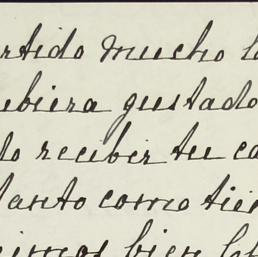 rtido mucho l
ubiera gustado
to reciber tu ca
tanto como tie
imos bien